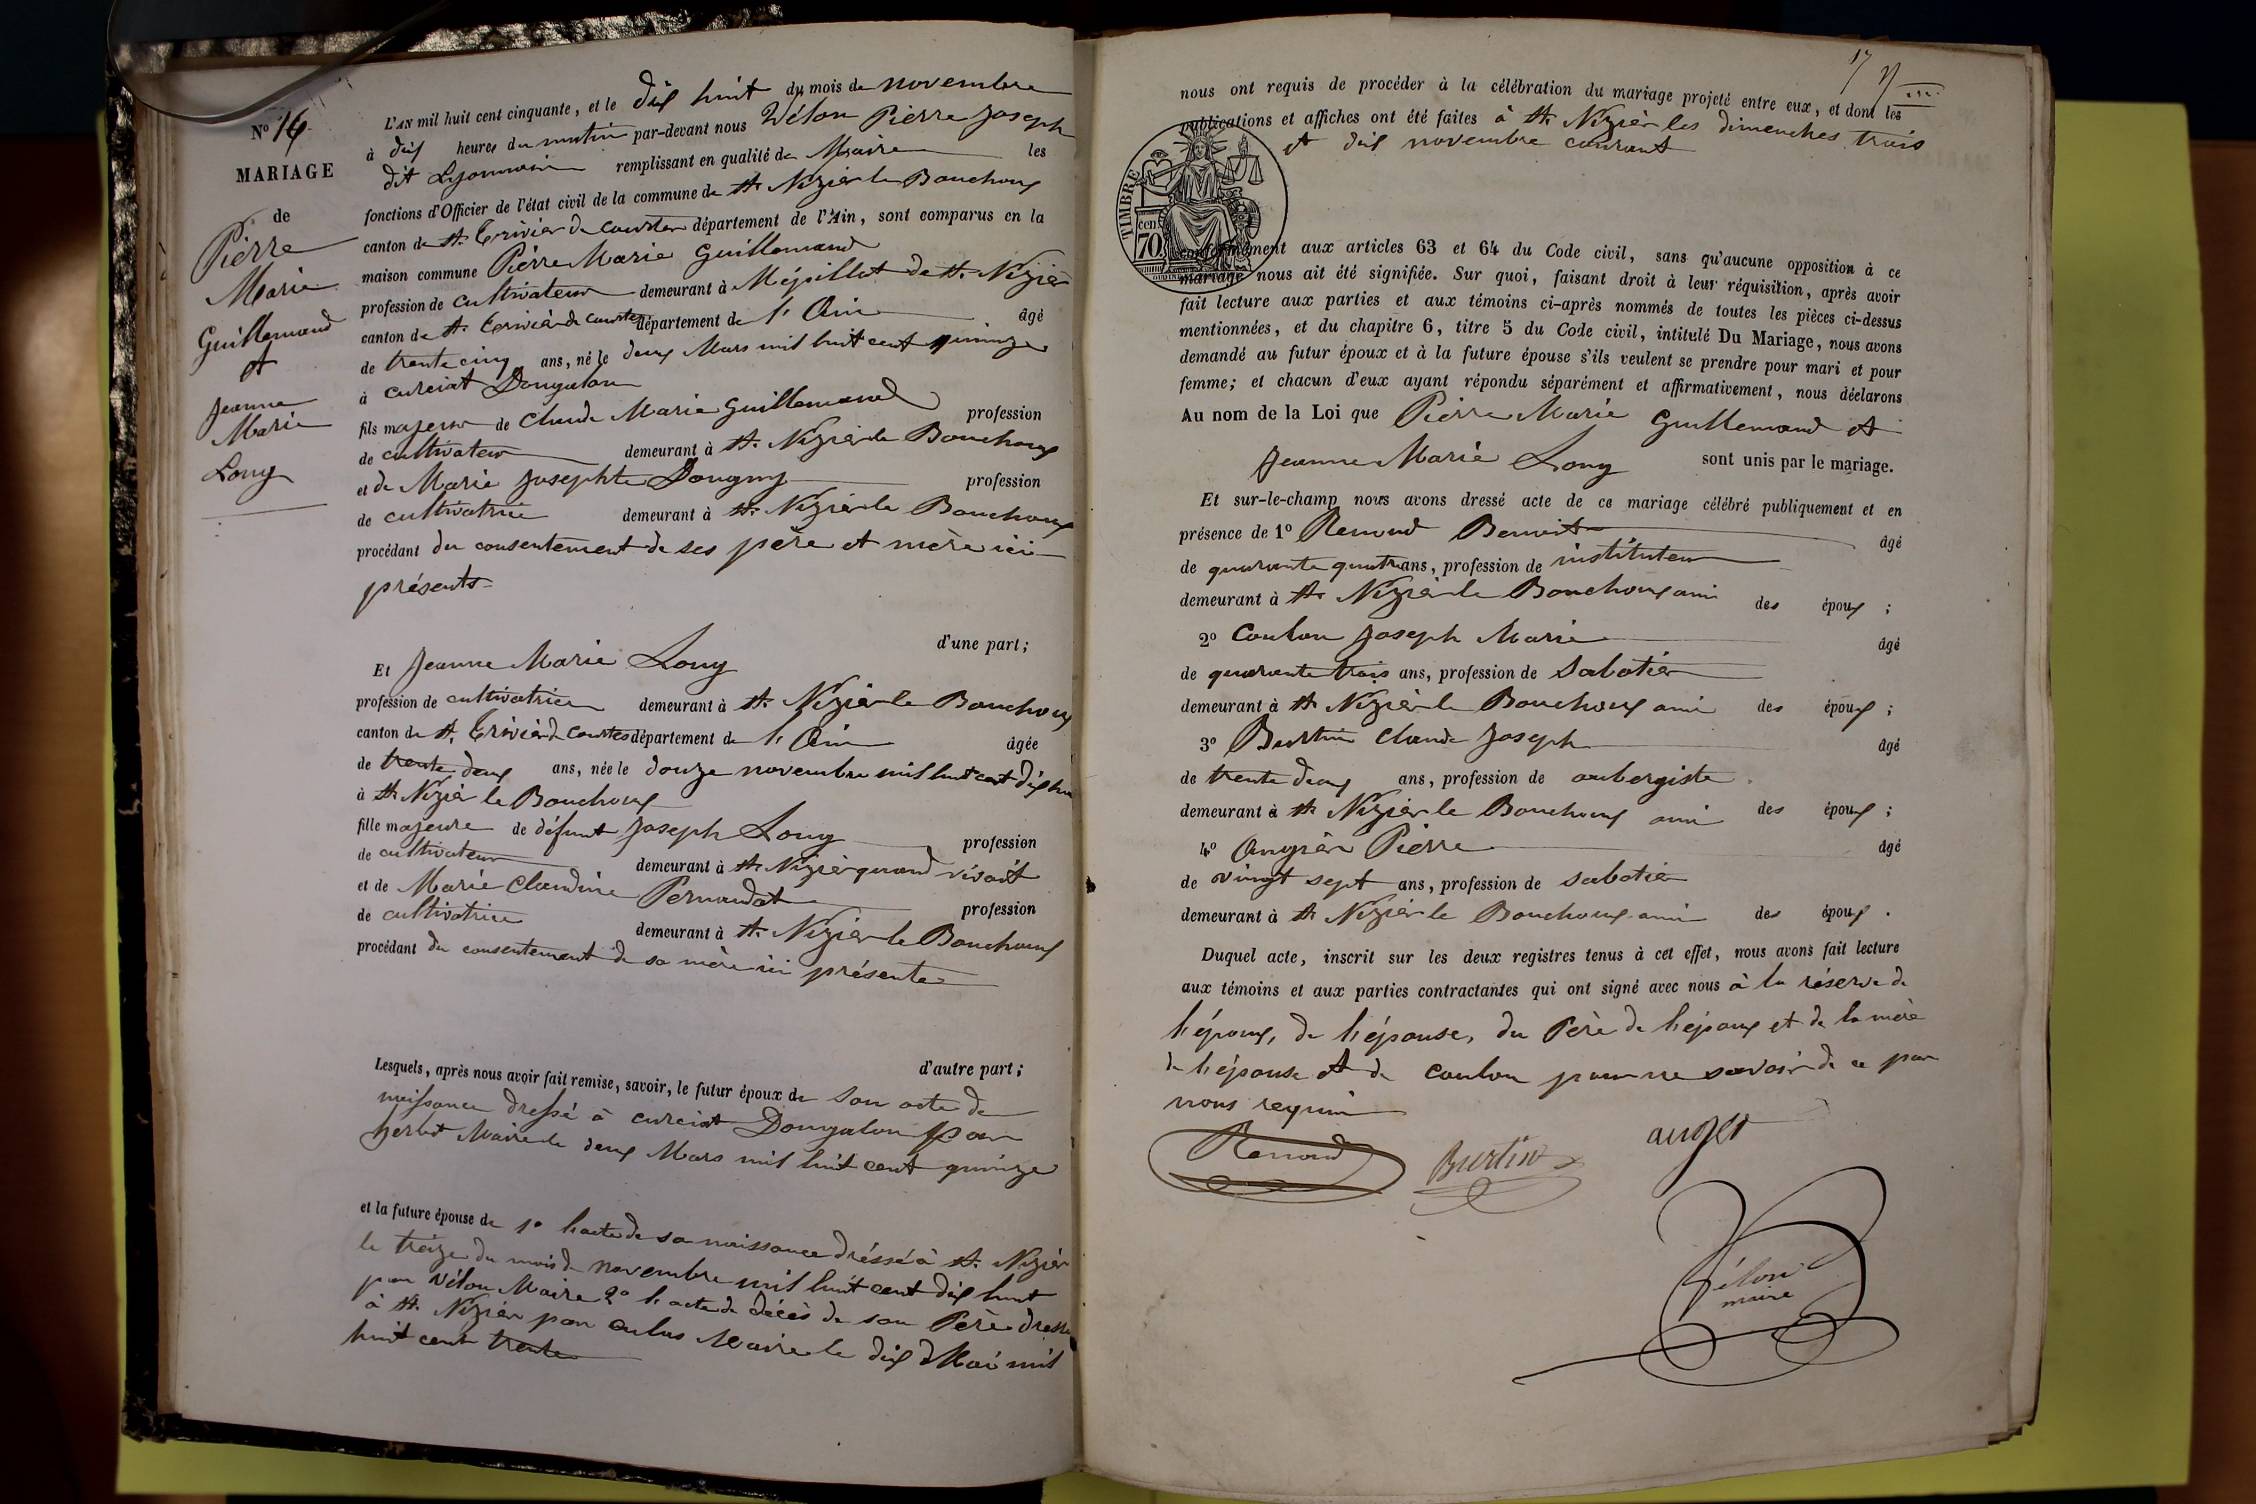 N° 14
MARIAGE
de
Pierre
Marie
Guillemaud
et
Jeanne
Marie
Lony
L'AN mil huit cent cinquante, et le dix huit du mois de novembre
à dix heures du matin par-devant nous Vélon Pierre Joseph
dit Lyonnais remplissant en qualité de Maire les
fonctions d'Officier de l'état civil de la commune de St. Nizier le Bouchoux
canton de St. Trivier de courtes département de l'Ain, sont comparus en la
maison commune Pierre Marie Guillemaud
profession de cultivateur demeurant à Mépillat de St. Nizier
canton de St. Trivier de courtes département de l'Ain âgé
de trente cinq ans, né le deux Mars mil huit cent quinze
à curciat Dongalon
fils majeur de Claude Marie Guillemaud profession
de cultivateur demeurant à St. Nizier le Bouchoux
et de Marie Josephte Dougny profession
de cultivatrice demeurant à St. Nizier le Bouchoux
procédant du consentement de ses père et mère ici
présents
d'une part;
Et Jeanne Marie Lony
profession de cultivatrice demeurant à St. Nizier le Bouchoux
canton de St. Trivier de Courtes département de l'Ain âgée
de trente deux ans, née le douze novembre mil huit cent dix hu
à St. Nizier le Bouchoux
fille majeure de défunt Joseph Lony profession
de cultivateur demeurant à St. Nizier quand vivait
et de Marie Claudine Pernodat profession
de cultivatrice demeurant à St. Nizier le Bouchoux
procédant du consentement de sa mère ici présente
d'autre part;
Lesquels, après nous avoir fait remise, savoir, le futur époux de son acte de
naissance dressé à curciat Dongalon par
herbet Maire le deux Mars mil huit cent quinze
et la future épouse de 1° l'acte de sa naissance dréssé à St. Nizier
le treize du mois de novembre mil huit cent dix huit
par Vélon Maire 2° l'acte de décès de son Père dressé
à St. Nizier par Maire le dix Mai mil
huit cent trente
17
nous ont requis de procéder à la célébration du mariage projeté entre eux, et dont les
publications et affiches ont été faites à St. Nizier les dimenches trois
et dix novembre courant
TIMBRE
cen.
70
conformément aux articles 63 et 64 du Code civil, sans qu'aucune opposition à ce
mariage nous ait été signifiée. Sur quoi, faisant droit à leur réquisition, après avoir
fait lecture aux parties et aux témoins ci-après nommés de toutes les pièces ci-dessus
mentionnées, et du chapitre 6, titre 5 du Code civil, intitulé Du Mariage, nous avons
demandé au futur époux et à la future épouse s'ils veulent se prendre pour mari et pour
femme; et chacun d'eux ayant répondu séparément et affirmativement, nous déclarons
Au nom de la Loi que Pierre Marie Guillemaud et
Jeanne Marie Lony sont unis par le mariage.
Et sur-le-champ nous avons dressé acte de ce mariage célébré publiquement et en
présence de 1° Renoud Benoit âgé
de quarante quatre ans, profession de instituteur
demeurant à St. Nizier le Bouchoux ami des époux ;
2° Coulon Joseph Marie âgé
de quarante trois ans, profession de Sabotier
demeurant à St Nizier le Bouchoux ami des époux ;
3° Burtin Claude Joseph âgé
de trente deux ans, profession de aubergiste
demeurant à St Nizier le Bouchoux ami des époux ;
4° Pierre âgé
de vingt sept ans, profession de sabotier
demeurant à St Nizier le Bouchoux ami des époux .
Duquel acte, inscrit sur les deux registres tenus à cet effet, nous avons fait lecture
aux témoins et aux parties contractantes qui ont signé avec nous à la réserve de
l'époux, de l'épouse, du Père de l'époux et de la mère
de l'épouse et de coulon pour ne savoir de ce par
nous requis
Renoud
Burtin
auger
Vélon
maire